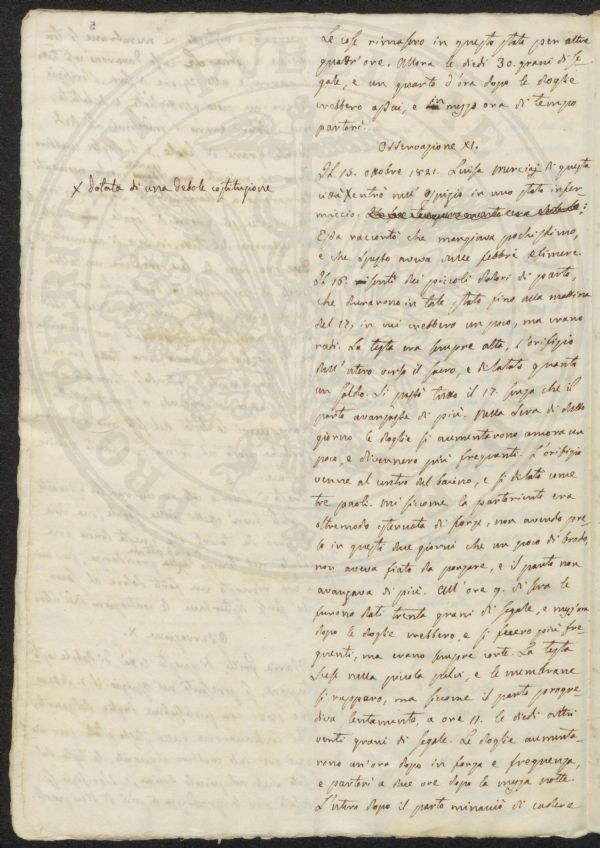 5
Le cose rimasero in questo stato per altre
quattr'ore. Allora le diedi 30. grani di se
gale, e un quarto d'ora dopo le doglie
crebbero assai, e in mezz'ora di tempo
partorì.
Osservazione XI.
Il 15. ottobre 1821. Luisa di questa
città X entrò nell'Ospizio in uno stato infer
miccio.
Essa raccontò che mangiava pochissimo,
e che spesso aveva delle febbri effimere.
Il 16. risentì dei piccoli dolori di parto,
che durarono in tale stato fino alla mattina
del 17, in cui crebbero un poco, ma erano
radi. La testa era sempre alta, l'orifizio
dell'utero verso il sacro, e dilatato quanto
un soldo. Si passò tutto il 17. senza che il
parto avanzasse di più. Nella sera di detto
giorno le doglie si aumentarono ancora un
poco, e divennero più frequenti. L'orifizio
venne al centro del bacino, e si dilatò come
tre paoli. Ma siccome la partoriente era
oltremodo estenuata di forze, non avendo pre
so in questi due giorni che un poco di brodo,
non aveva fiato da ponzare, e il parto non
avanzava di più. All'ore 9. di sera le
furono dati trenta grani di segale, e mezz'ora
dopo le doglie crebbero, e si fecero più fre
quenti, ma erano sempre corte. La testa
scese nella piccola pelvi, e le membrane
si rupparo, ma siccome il parto progre
diva lentamente, a ore 11. le diedi altri
venti grani di segale. Le doglie aumenta
rono un'ora dopo in forza e frequenza,
e partorì a due ore dopo la mezza notte.
L'utero dopo il parto minacciò di cadere
X dotata di una debole costituzione